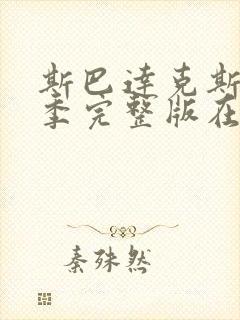 斯巴达克斯
季完整版在
秦殊然